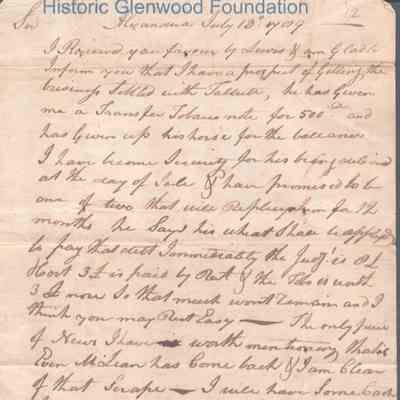 Historic Glenwood Foundation
12
Sir Alexandria July 18th 1789
I Received your favour by Lewis & am Glad to
Inform you that I have a prospect of Getting the
business Settled with Talbutt, he has Given
me a Transfer Tobacco note for 500 and
has Given up his horse for the balance
I have become Security for his being delivered
at the day of Sale & have promised to be
one of two that will Replevy him for 12
months he Says his wheat Shall be applyed
to pay that debt Immediately the Judgt is
3£ is paid by Rent & the Tobo is worth
3£ now So that much wont Remain and I
think you may Rest Easy — The only piece
of News I have worth mentioning thats
Even McLean has Come back & I am Clear
of that Scrape — I will have Some Cash